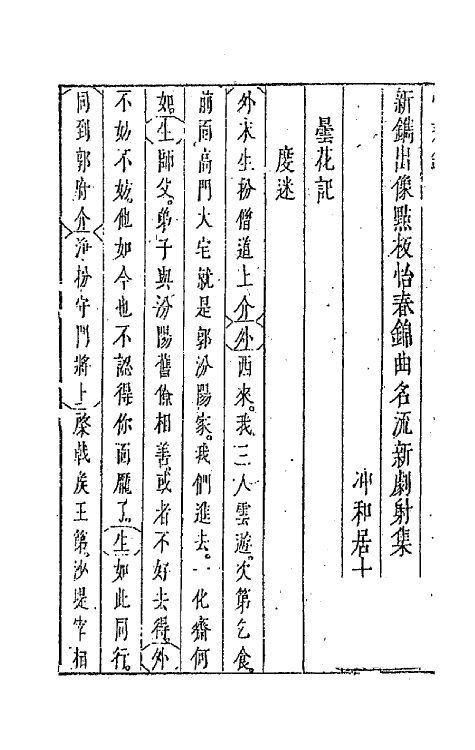 新鐫出像點板怡春錦曲名流新劇射集
冲和居士
曇花記
度迷
外末生扮僧道上介外西來我三人雲遊次第乞食
前面高門大宅就是郭汾陽家我們進去一化齋何
如生師父弟子與汾陽舊僚相善或者不好去得外
不妨不妨他如今也不認得你面龐了生如此同行
同到郭府介淨扮守門將上棨戟矦王第沙堤宰相